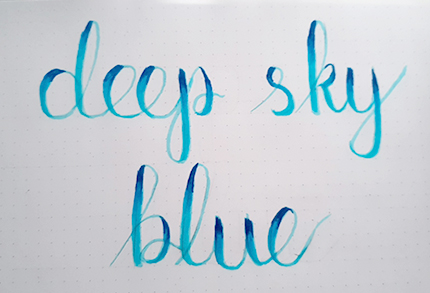 deep sky
blue